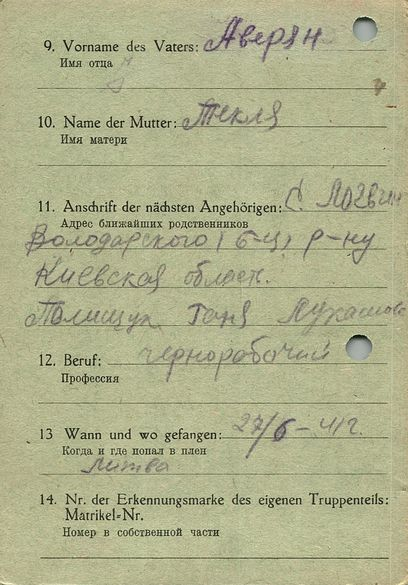 9. Vorname des Vaters: Аверян
Имя отца
10. Name der Mutter: Текля
Имя матери
11. Anschrift der nächsten Angehörigen: с. Логвин
Адрес ближайших родственников
Володарского (б-ц) р-ну
Киевская област.
Полищук Ганя Лукашова
12. Beruf: чернорабочий
Профессия
13 Wann und wo gefangen: 27/6–41г.
Когда и где попал в плен
Литва
14. Nr. der Erkennungsmarke des eigenen Truppenteils:
Matrikel-Nr.
Номер в собственной части